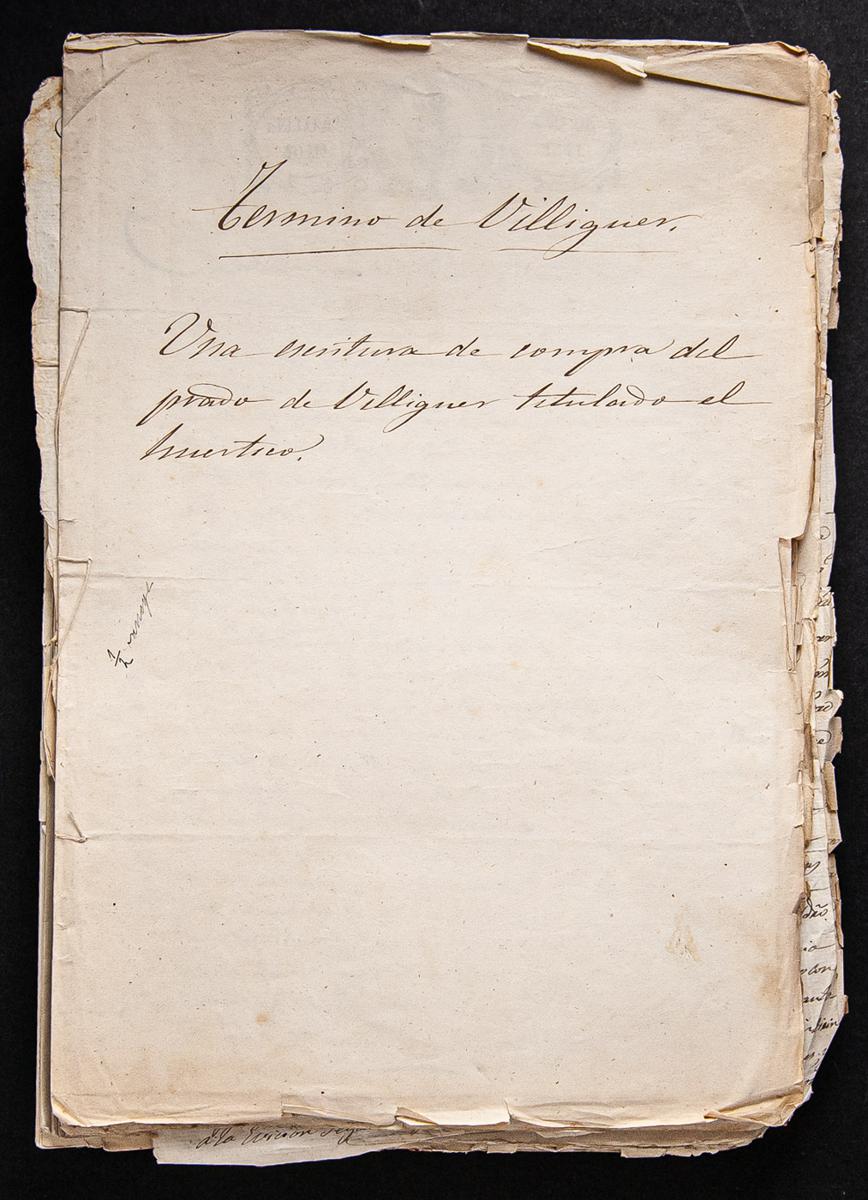 Termino de Villiguer.
Una escritura de compra del
prado de Villiguer titulado el
huertico.
1/2
a la